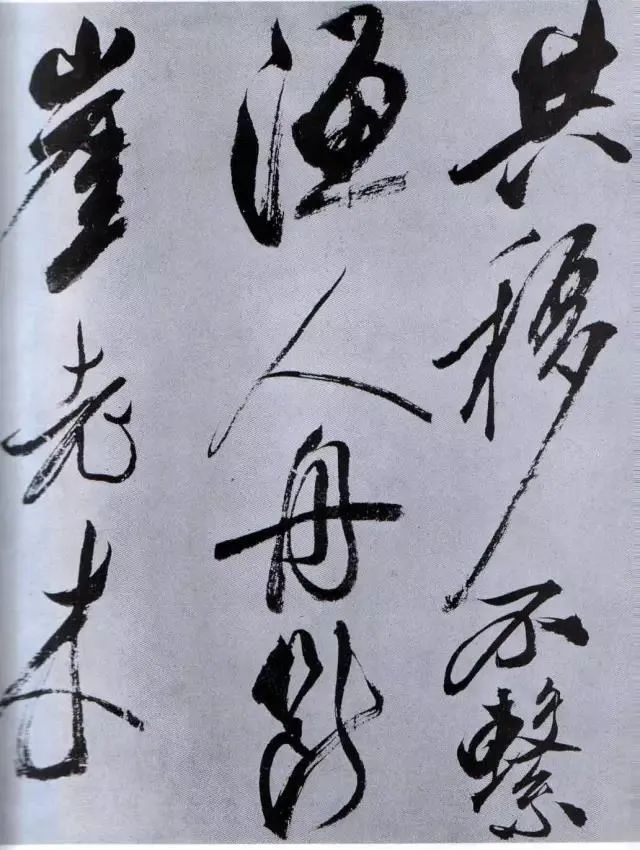 共移不繫
漁人舟斷
崖老木